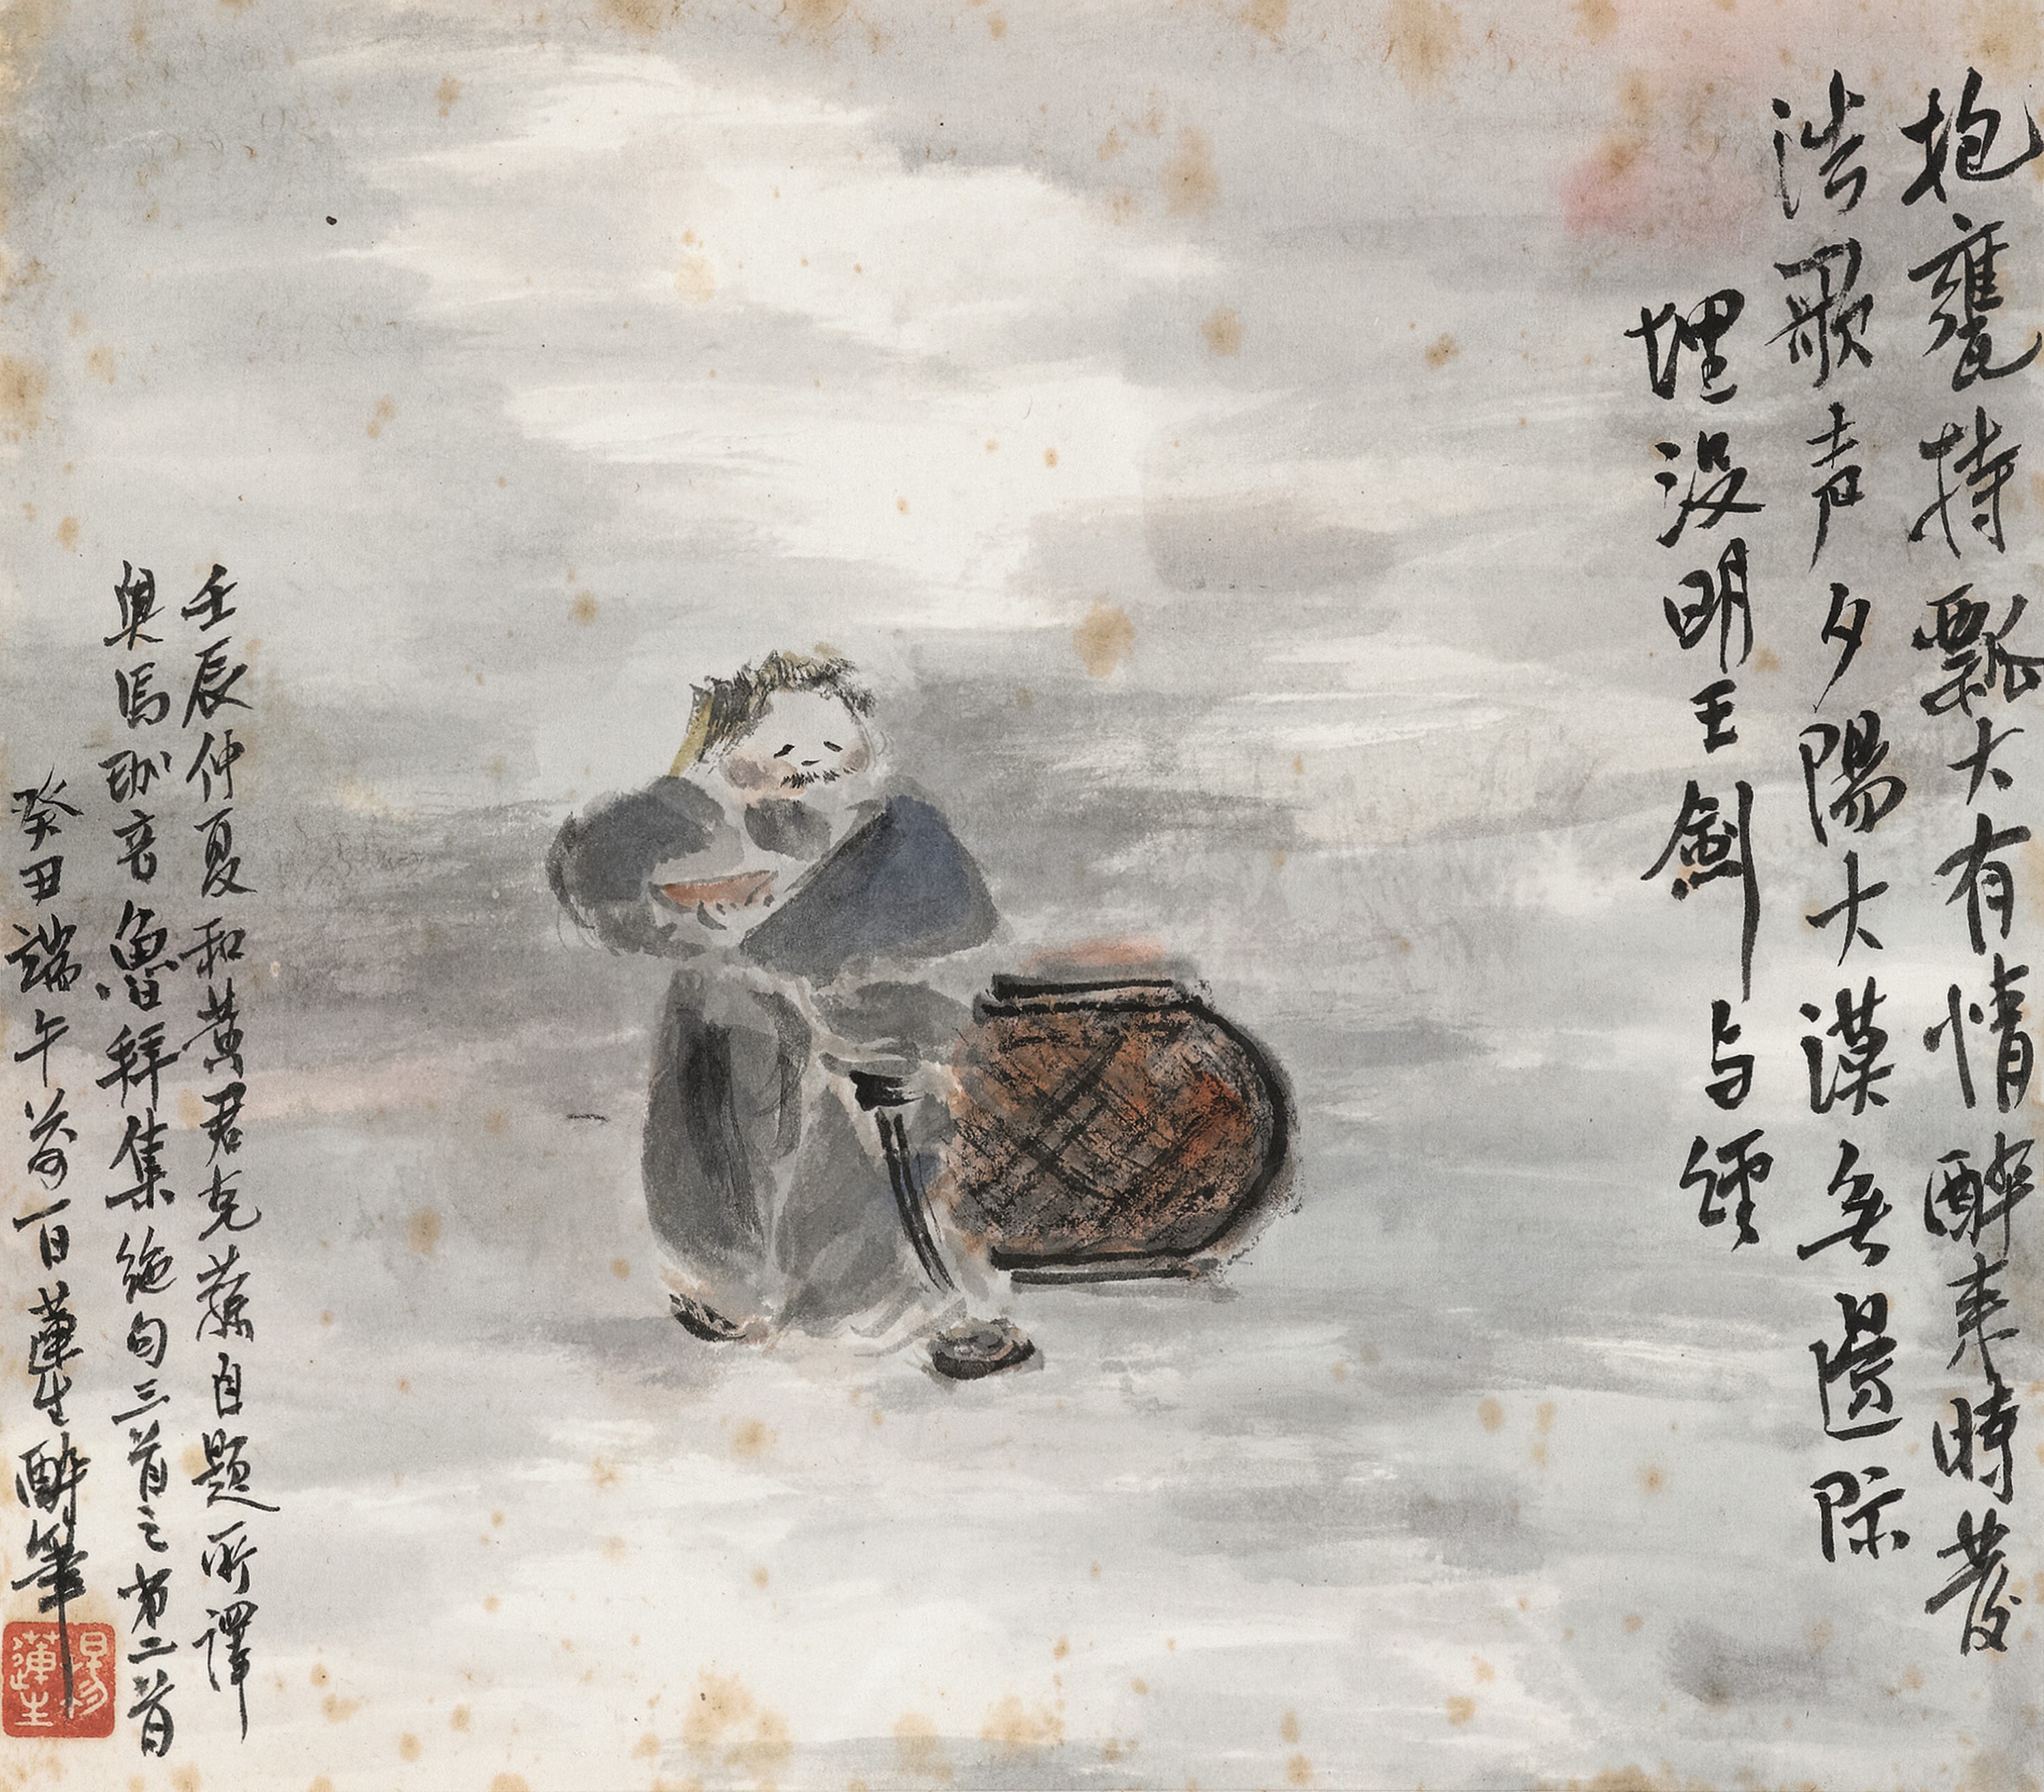 抱甕持瓢大有情醉来時發
浩歌声夕陽大漠無邊际
埋没明王劍与經
壬辰仲夏和黄君克蓀自題所譯
奥馬珈音魯拜集绝句三首之第二首
癸丑端午前一日蓮生醉筆
楊蓮生